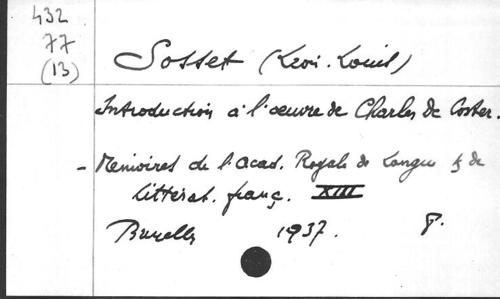 432
77
(13)
Sosset (Léon. Louis)
Introduction à l'œuvre de Charles de Coster.
- Memoires de l'Acad. Royale de Langue & de
littérat. franç. XIII
Bruxelles 1937. 8.